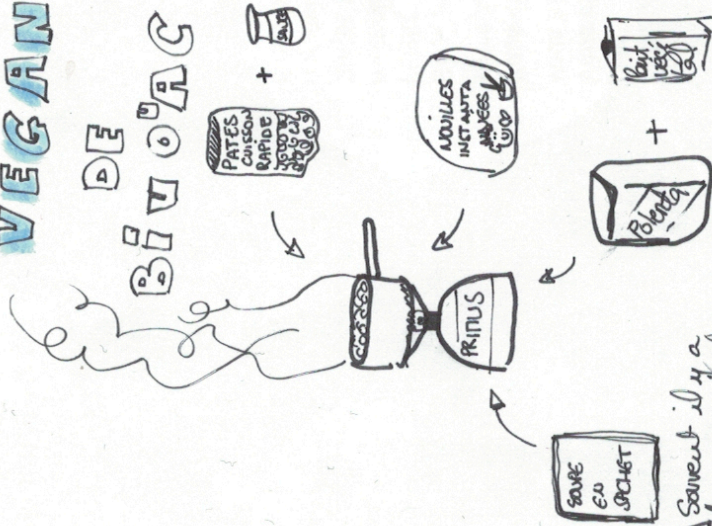 VEGAN
DE
BiVO'AC
PATES
CUISSON
RAPIDE
+
SAUCE
NOUILLES
INSTANTA
NÉES
Polenta
+
lait
PRIMUS
SOUPE
EN
SACHET
Souvent il y a